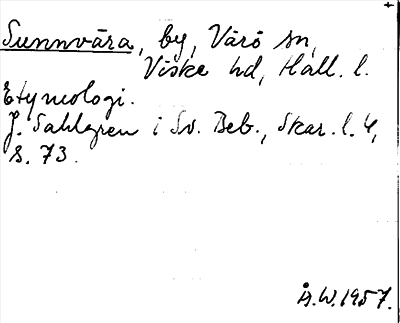 Sunnvära, by, Värö sn,
Viske hd, Hall. l.
Etymologi.
J. Sahlgren i Sv. Beb., Skar. l. 4,
s. 73.
Å.W. 1957.